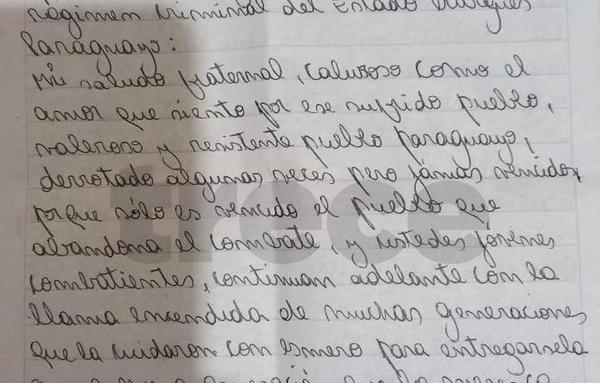 régimen criminal del Estado burgués
Paraguayo:
Mi saludo fraternal, caluroso como el
amor que siento por ese sufrido pueblo,
valeroso y resistente pueblo paraguayo,
derrotado algunas veces pero jámas vencido,
porque sólo es vencido el pueblo que
abandona el combate, y ustedes jóvenes
combatientes, continuan adelante con la
llama encendida de muchas generaciones
que la cuidaron con esmero para entregarsela
trece